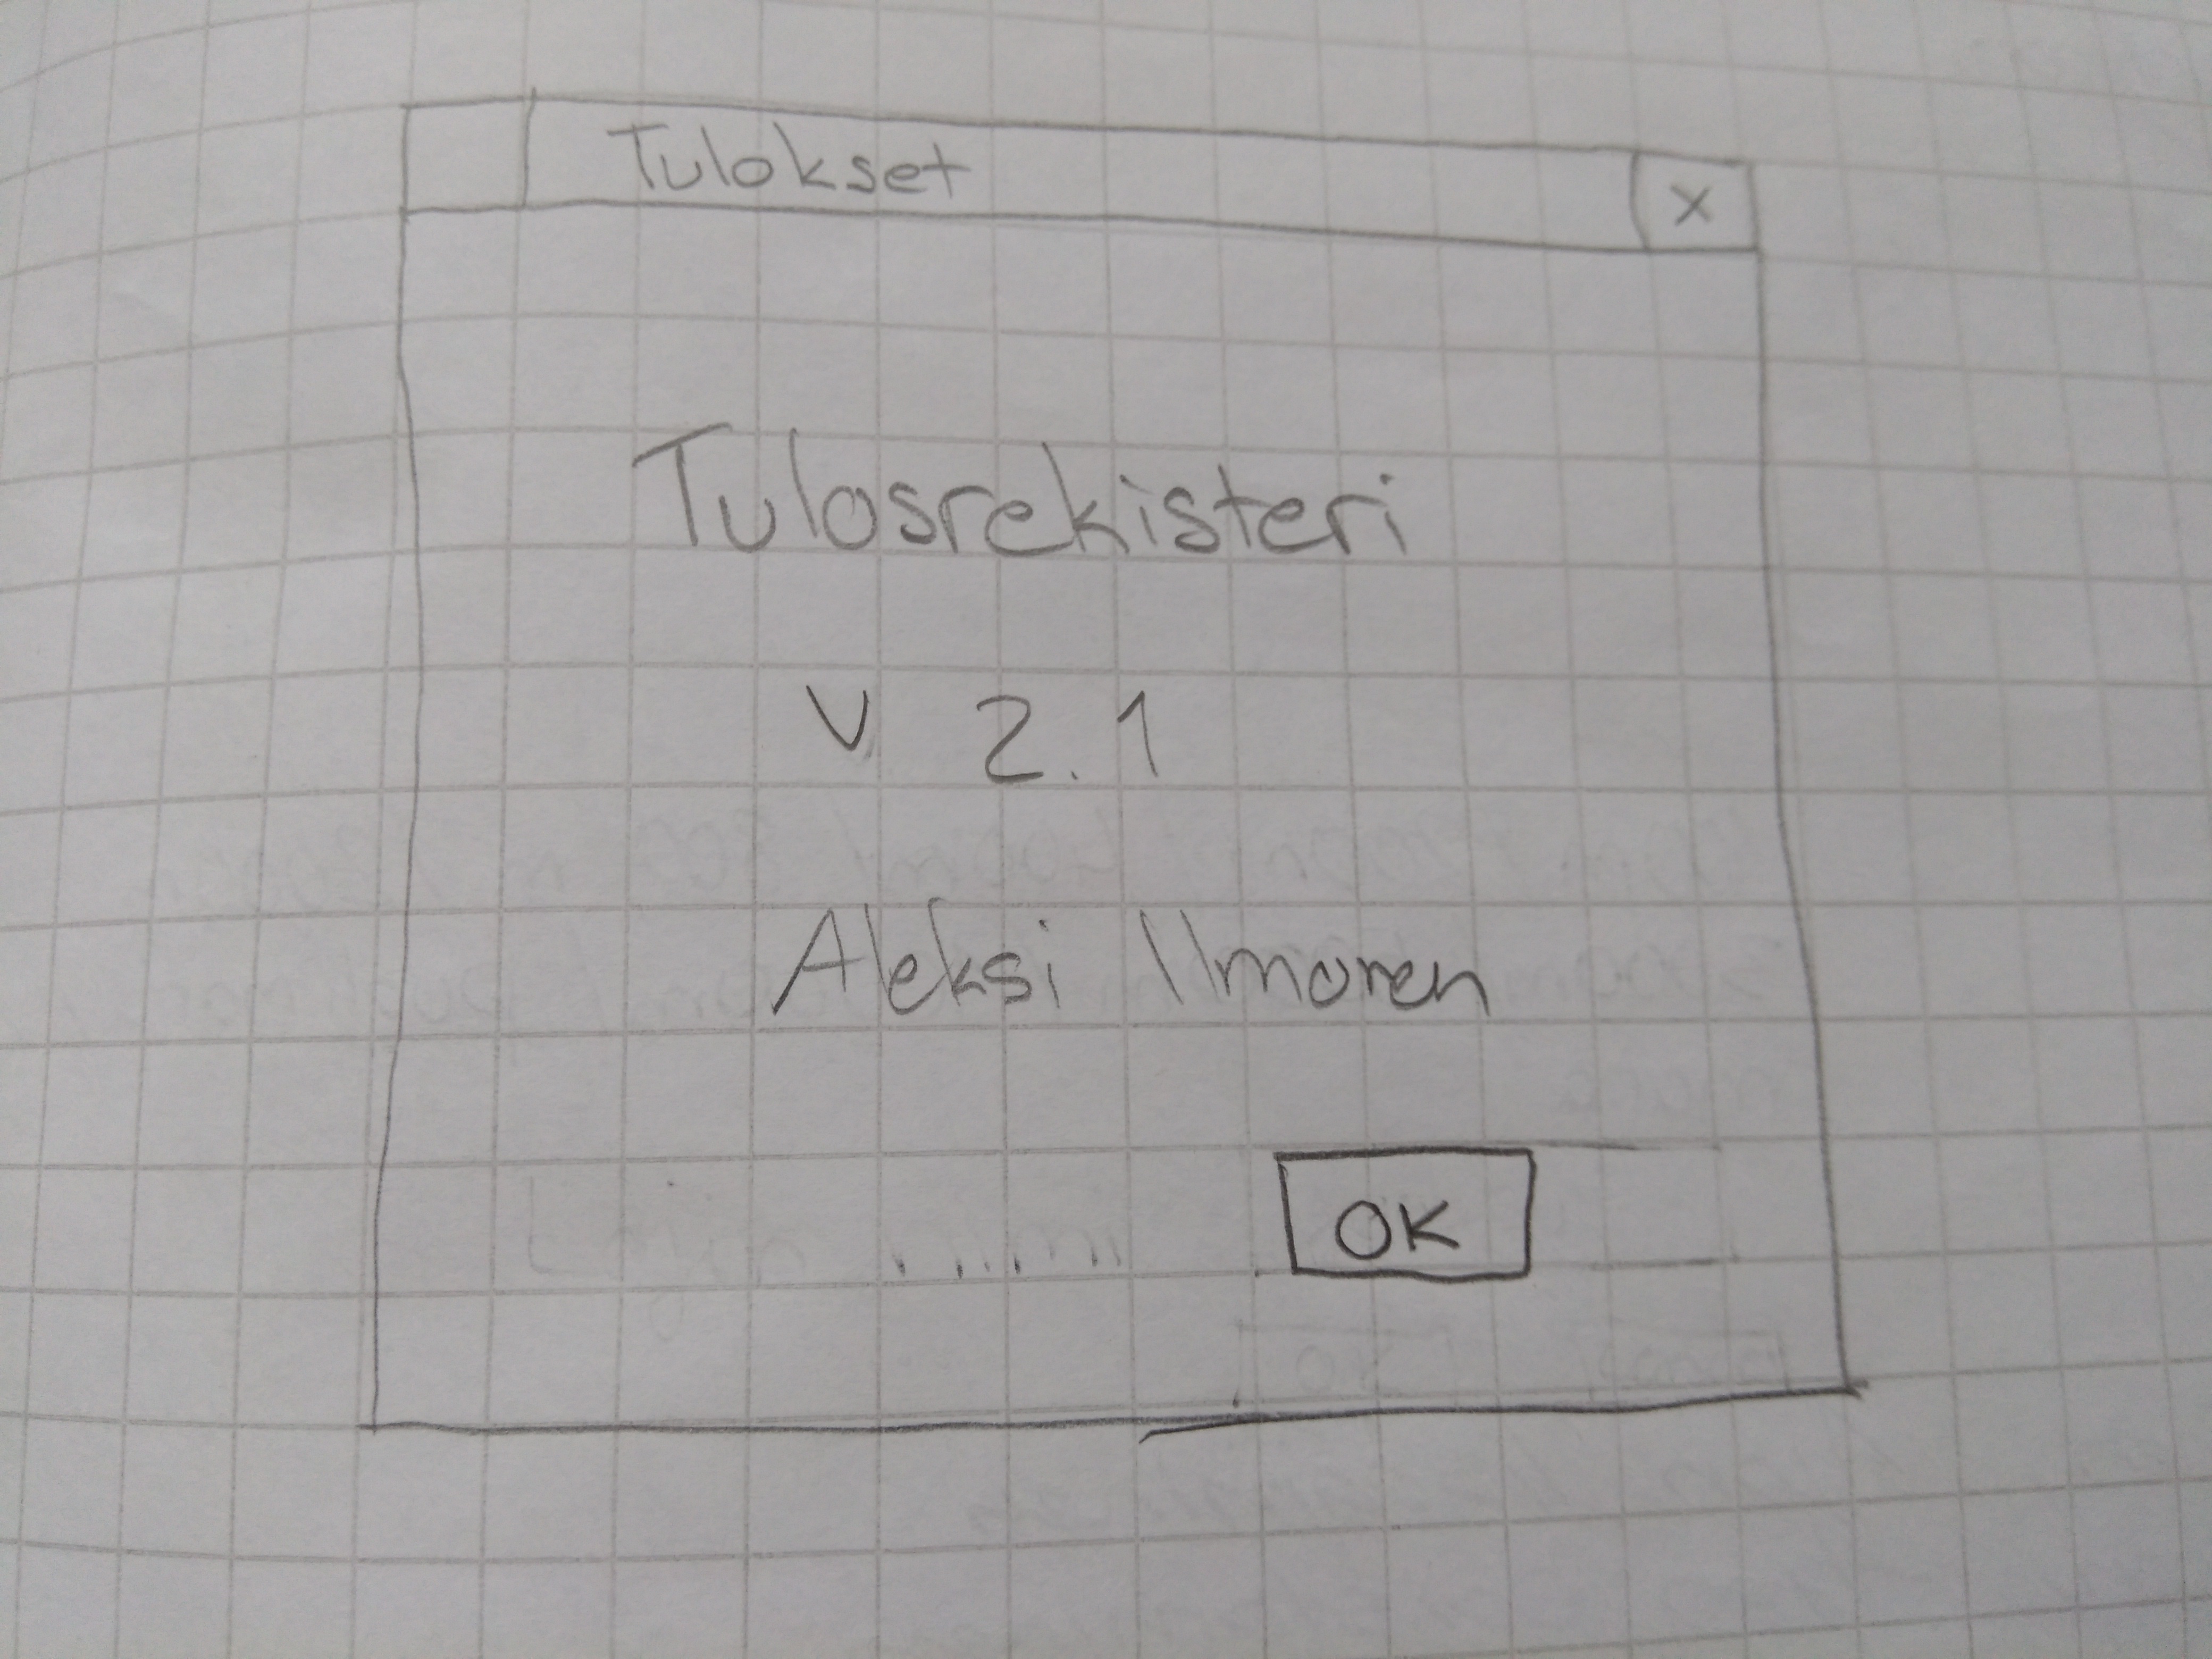 Tulokset X
Tulosrekisteri
v 2.1
Aleksi Ilmonen
OK